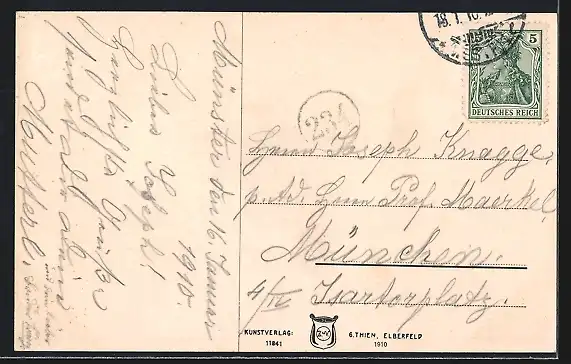 Münster den 16. Januar
1910.
Lieber Joseph!
Herzlichste Grüße
sendet dir deine
Mutterl.
18.1.10.
5
DEUTSCHES REICH
234
Herrn Joseph Knagge.
p. Adr. Herrn Prof. Maerkel,
München.
4/IV Isartorplatz.
KUNSTVERLAG:
11841
G.THIEN, ELBERFELD
1910